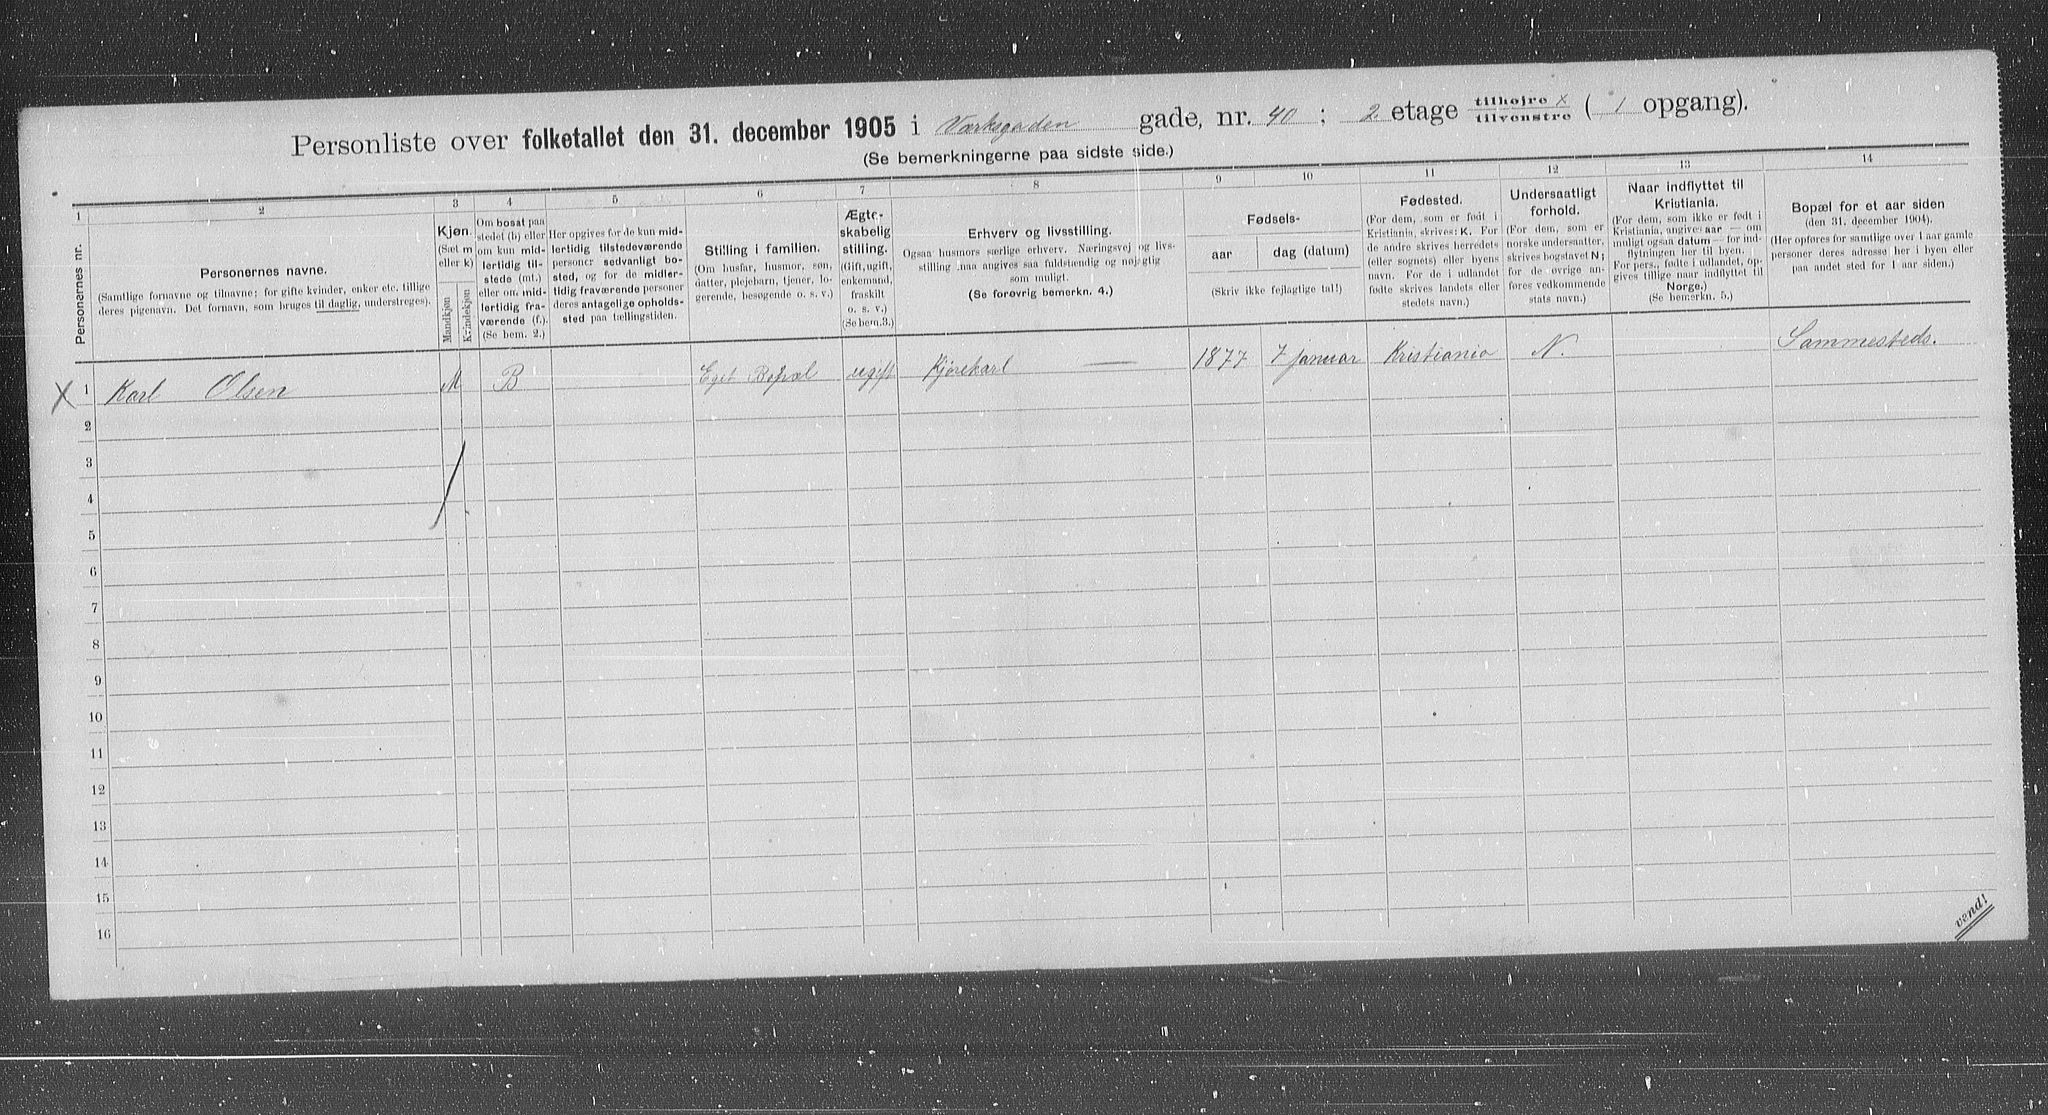 Personliste over folketallet den 31. december 1905 i Værksgaden gade, nr. 40 ; 2 etage tilhøjre X
tilvenstre ( 1 opgang).
(Se bemerkningerne paa sidste side.)
1 2 3 4 5 6 7 8 9 10 11 12 13 14
Personernes nr.
Personernes navne.
(Samtlige fornavne og tilnavne; for gifte kvinder, enker etc. tillige
deres pigenavn. Det fornavn, som bruges til daglig, understreges).
Kjøn.
(Sæt m
eller k)
Mandkjøn
Kvindekjøn
Om bosat paa
stedet (b) eller
om kun mid-
lertidig til-
stede (mt.)
eller om mid-
lertidig fra-
værende (f.).
(Se bem. 2.)
Her opgives for de kun mid-
lertidig tilstedeværende
personer sedvanlig bo-
sted, og for de midler-
tidig fraværende personer
deres antagelige opholds-
sted paa tællingstiden.
Stilling i familien.
(Om husfar, husmor, søn,
datter, plejebarn, tjener, lo-
gerende, besøgende o. s. v.)
Ægte-
skabelig
stilling.
(Gift, ugift,
enkemand,
fraskilt
o. s. v.)
(Se bem.3.)
Erhverv og livsstilling.
Ogsaa husmors særlige erhverv. Næringsvej og livs-
stilling maa angives saa fuldstændig og nøjagtig
som muligt.
(Se forøvrig bemerkn. 4.)
Fødsels-
aar
dag (datum)
(Skriv ikke fejlagtige tal!)
Fødested.
(For dem, som er født i
Kristiania, skrives: K. For
de andre skrives herredets
(eller sognets) eller byens
navn. For de i udlandet
fødte skrives landets eller
stedets navn.)
Undersaatligt
forhold.
(For dem, som er
norske undersaatter,
skrives bogstavet N;
for de øvrige an-
føres vedkommende
stats navn.)
Naar indflyttet til
Kristiania.
(For dem, som ikke er født i
Kristiania, angives aar — om
muligt ogsaa datum — for ind-
flytningen her til byen.
For pers., fødte i udlandet, op-
gives tillige naar indflyttet til
Norge.)
(Se bemerkn. 5.)
Bopæl for et aar siden
(den 31. december 1904).
(Her opføres for samtlige over 1 aar gamle
personer deres adresse her i byen eller
paa andet sted for 1 aar siden.)
X 1 Karl Olsen M B Eget Bopæl ugift Kjørekarl — 1877 7 januar Kristiania N. Sammesteds.
2
3
4
5
6
7
8
9
10
11
12
13
14
15
16
vend!